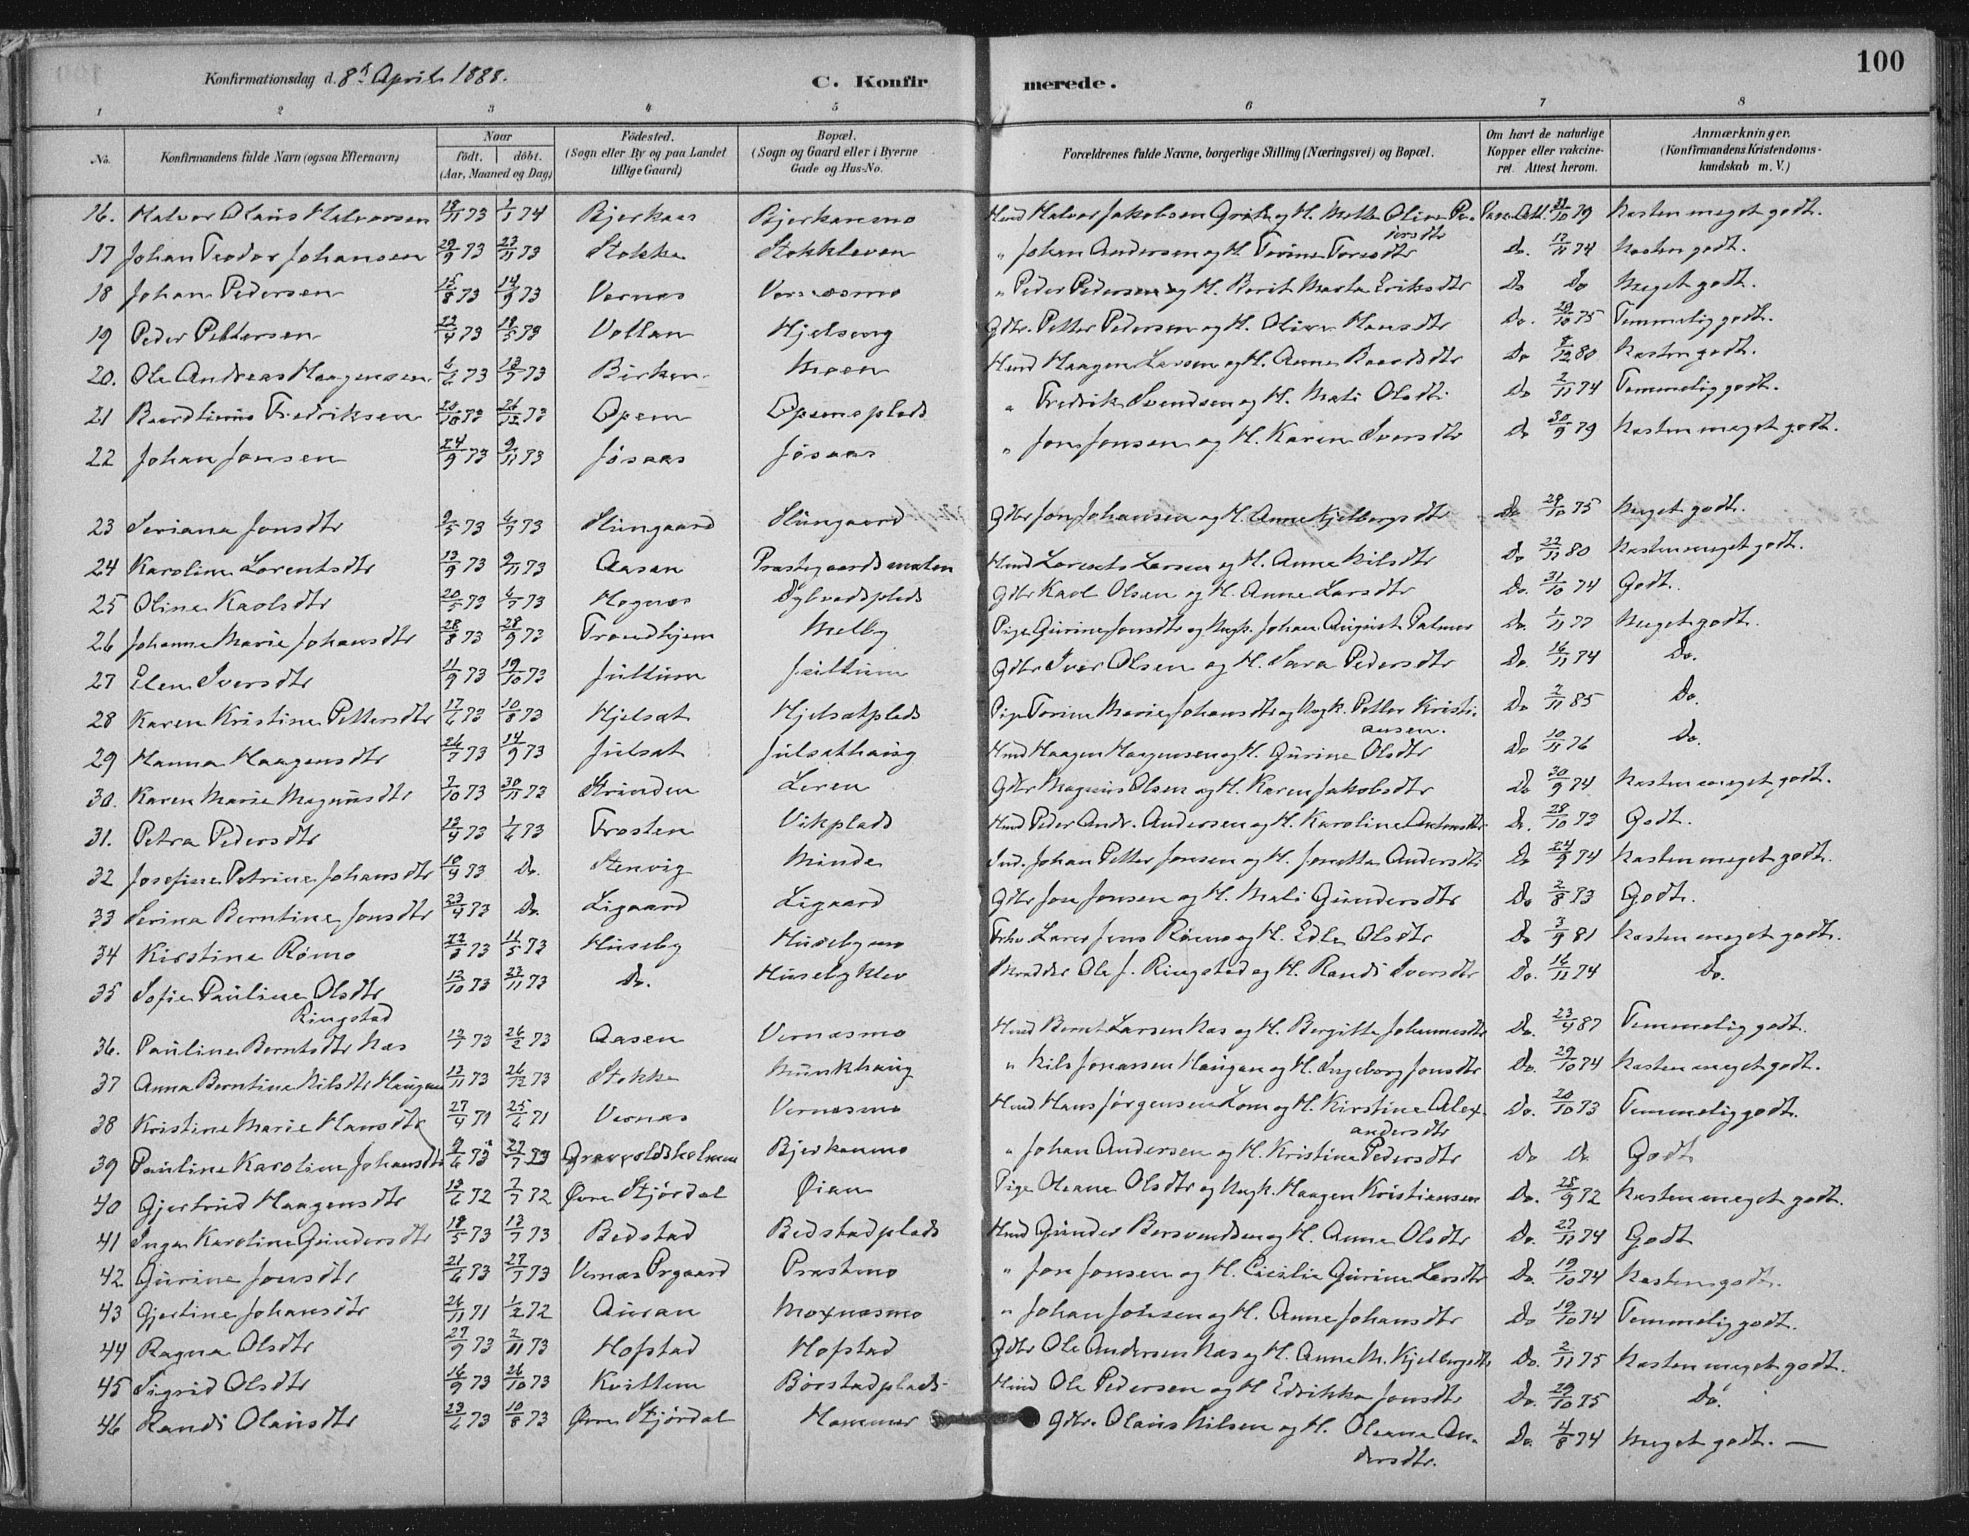 100
Konfirmationsdag d. 8d April 1888.
C. Konfirmerede.
1 2 3 4 5 6 7 8
No. Konfirmandens fulde Navn (ogsaa Efternavn) Naar födt. döbt. (Aar, Maaned og Dag) Födested. (Sogn eller By og paa Landet tillige Gaard) Bopæl. (Sogn og Gaard eller i Byerne Gade og Hus-No. Forældrenes fulde Navne, borgerlige Stilling (Næringsvei) og Bopæl. Om havt de naturlige Kopper eller vakcineret. Attest herom. Anmærkninger. (Konfirmandens Kristendomskundskab m. V.)
16. Halvor Olaus Halvorsen 18/11 73 1/1 74 Bjerkaas Bjerkanmo Hmd Halvor Jakobsen og H. Mette Oline Pedersdtr 79 Næsten meget godt.
17 Johan Teodor Johansen 29/9 73 23/11 73 Stokke Stokkleven " Johan Andersen og H. Torine Torsdtr Do. 12/11 74 Næsten godt.
18 Johan Pedersen 15/8 73 14/9 73 Vernæs Vernæsmo " Peder Pedersen og H. Berit Marta Eriksdtr Do Do Meget godt.
19 Peder Pettersen 23/4 73 18/5 73 Vollan Hjelseng Gdbr. Petter Pedersen og H. Oline Hansdtr Do. 29/10 75 Temmelig godt.
20. Ole Andreas Haagensen 6/6 73 13/7 73 Birken Moen Hmd Haagen Larsen og H. Anne Baardsdtr Do 8/12 80 Næsten godt.
21 Baard Fredriksen 20/10 73 26/12 73 Opem Opemsplads " Fredrik Svendsen og H. Mali Olsdtr Do 2/11 74 Temmelig godt.
22 Johan Jonsen 24/9 73 9/11 73 Jøsaas Jøsaas " Jon Jonsen og H. Karen Iversdtr Do 30/9 79 Næsten meget godt.
23 Seriana Jonsdtr 9/5 73 6/7 73 Skungaard Skungaard Gdbr Jon Johansen og H. Anne Kjelbergsdtr Do 29/10 75 Meget godt.
24 Karoline Lorentsdtr 13/9 73 9/11 73 Aasen Præstegaardsmalen Hmd Lorents Larsen og H. Anne Nilsdtr Do 22/11 80 Næsten meget godt.
25 Oline Karlsdtr 20/5 73 6/7 73 Hognes Gdbr Karl Olsen og H. Anne Larsdtr Do. 31/10 74 Godt.
26 Johanne Marie Johansdtr 28/8 73 28/9 73 Trondhjem Melby Pige Gurine Jonsdtr og Ungk. Johan August Palmer Do. 1/11 77 Meget godt.
27 Elen Iversdtr 11/9 73 19/10 73 Jullum Jullum Gdbr Iver Olsen og H. Sara Pedersdtr Do. 16/11 74 Do.
28 Karen Kristine Pettersdtr 17/6 73 10/8 73 Hjelsæt Hjelsætplads Pige Torine Marie Johansdtr og Ungk. Petter Kristiansen. Do 7/11 85 Do.
29 Hanna Haagensdtr 26/7 73 14/9 73 Julsæt Julsæthaug Hmd Haagen Haagensen og H. Gurine Olsdtr Do 10/11 76 Do.
30. Karen Marie Magnusdtr 7/10 73 30/11 73 Strinden Leren Gdbr Magnus Olsen og H. Karen Jakobsdtr Do 30/9 74 Næsten meget godt.
31. Petra Pedersdtr 12/4 73 1/6 73 Frosten Vikplads Hmd Peder Andr. Andersen og H. Karoline Do. 28/10 73 Godt.
32 Josefine Petrine Johansdtr 10/4 73 Do. Stenvig Minde Ind. Johan Petter Jensen og H. Jonetta Andersdtr Do 24/9 74 Næsten meget godt.
33 Serina Berntine Jonsdtr 23/4 73 Do. Ligaard Ligaard Gdbr Jon Jonsen og H. Mali Gundersdtr Do 2/8 73 Godt.
34 Kirstine Rømo 23/3 73 11/5 73 Huseby Husebymo Jens Rømo og H. Edle Olsdtr Do 3/9 81 Næsten meget godt.
35 Sofie Pauline Olsdtr Ringstad 12/10 73 23/11 73 Do. Husebyklev Ole J. Ringstad og H. Randi Iversdtr Do. 16/11 74 Do.
36. Pauline Berntsdtr Næs 12/1 73 26/2 73 Aasen Vernæsmo Hmd Bernt Larsen Næs og H. Bergitte Johannesdtr Do. 23/4 87 Temmelig godt.
37 Anna Berntine Nilsdtr Haugan 12/11 73 26/12 73 Stokke Munkhaug " Nils Jonassen Haugan og H. Ingeborg Jonsdtr Do. 29/10 74 Næsten meget godt.
38 Kristine Marie Hansdtr 27/4 71 25/6 71 Vernæs Vernæsmo Hmd Hans Jørgensen Lom og H. Kirstine Alexandersdtr Do. 20/10 73 Temmelig godt.
39 Pauline Karoline Johansdtr 9/6 73 27/7 73 Bjerkanmo " Johan Andersen og H. Kristine Pedersdtr Do Do. Godt
40 Gjertrud Haagensdtr 12/6 72 7/7 72 Øvre Stjørdal Øian Pige Oleane Olsdtr og Ungk. Haagen Kristiansen Do. 28/9 72 Næsten meget godt.
41 Inga Karoline Gundersdtr 18/5 73 13/7 73 Bedstad Bedstadplads Hmd Gunder Bersvendsen og H. Anne Olsdtr Do. 22/11 74 Godt
42 Gurine Jonsdtr 21/6 73 27/7 73 Vernæs Prgaard Præstmo " Jon Jonsen og H. Cicilie Gurine Larsdtr Do. 19/10 74 Næsten godt.
43 Gjertine Johansdtr 26/11 71 1/2 72 Auran Moxnæsmo " Johan Johnsen og H. Anne Johansdtr Do 19/10 74 Temmelig godt.
44 Ragna Olsdtr 27/9 73 2/11 73 Hofstad Hofstad Gdbr Ole Andersen Næs og H. Anna M. Kjelbergsdtr Do. 2/11 75 Næsten meget godt.
45 Sigrid Olsdtr 16/9 73 26/10 73 Kvittem Børstadplads Hmd Ole Pedersen og H Edrikka Jonsdtr Do. 29/10 75 Do.
46 Randi Olausdtr 23/6 73 10/8 73 Øvre Stjørdal Hammer Gdbr. Olaus Nilsen og H. Oleana Andersdtr. Do. 4/8 74 Meget godt. —